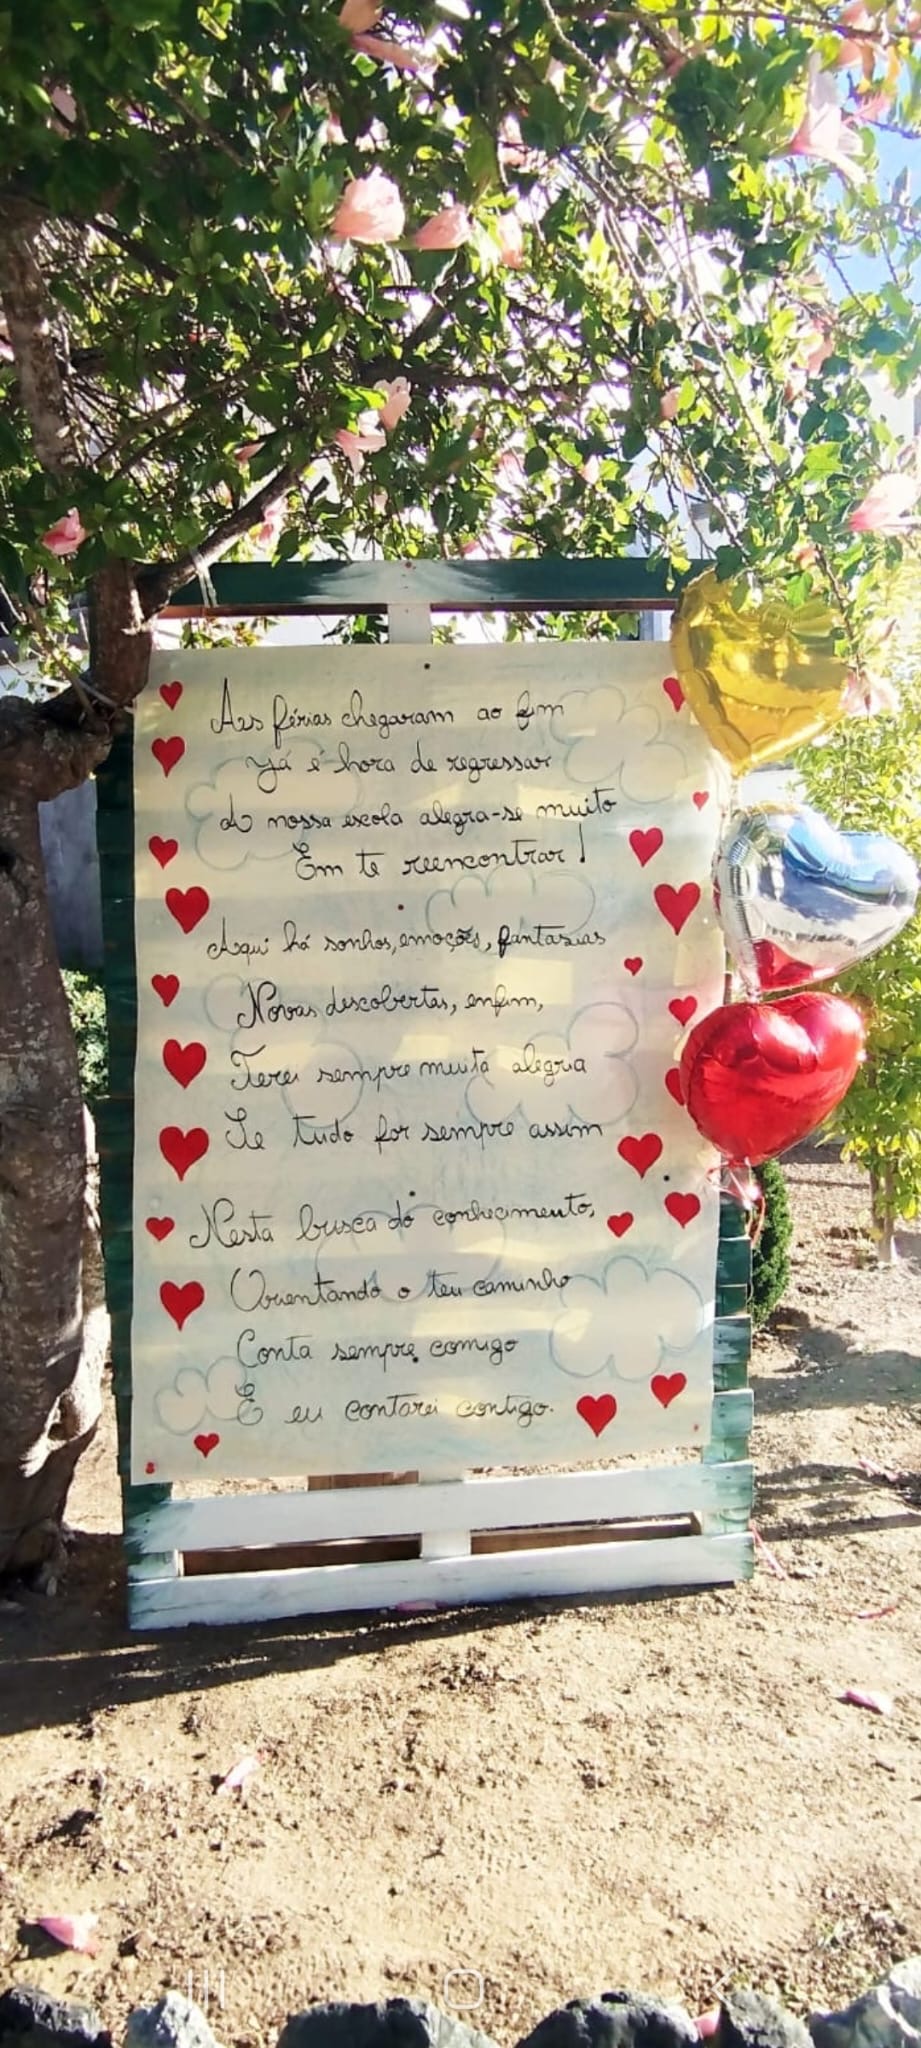 As férias chegaram ao fim
Já é hora de regressar
A nossa escola alegra-se muito
Em te reencontrar!
Aqui há sonhos, emoções, fantasias
Novas descobertas, enfim,
Terei sempre muita alegria
Se tudo for sempre assim
Nesta busca do conhecimento,
Orientando o teu caminho
Conta sempre comigo
E eu contarei contigo.